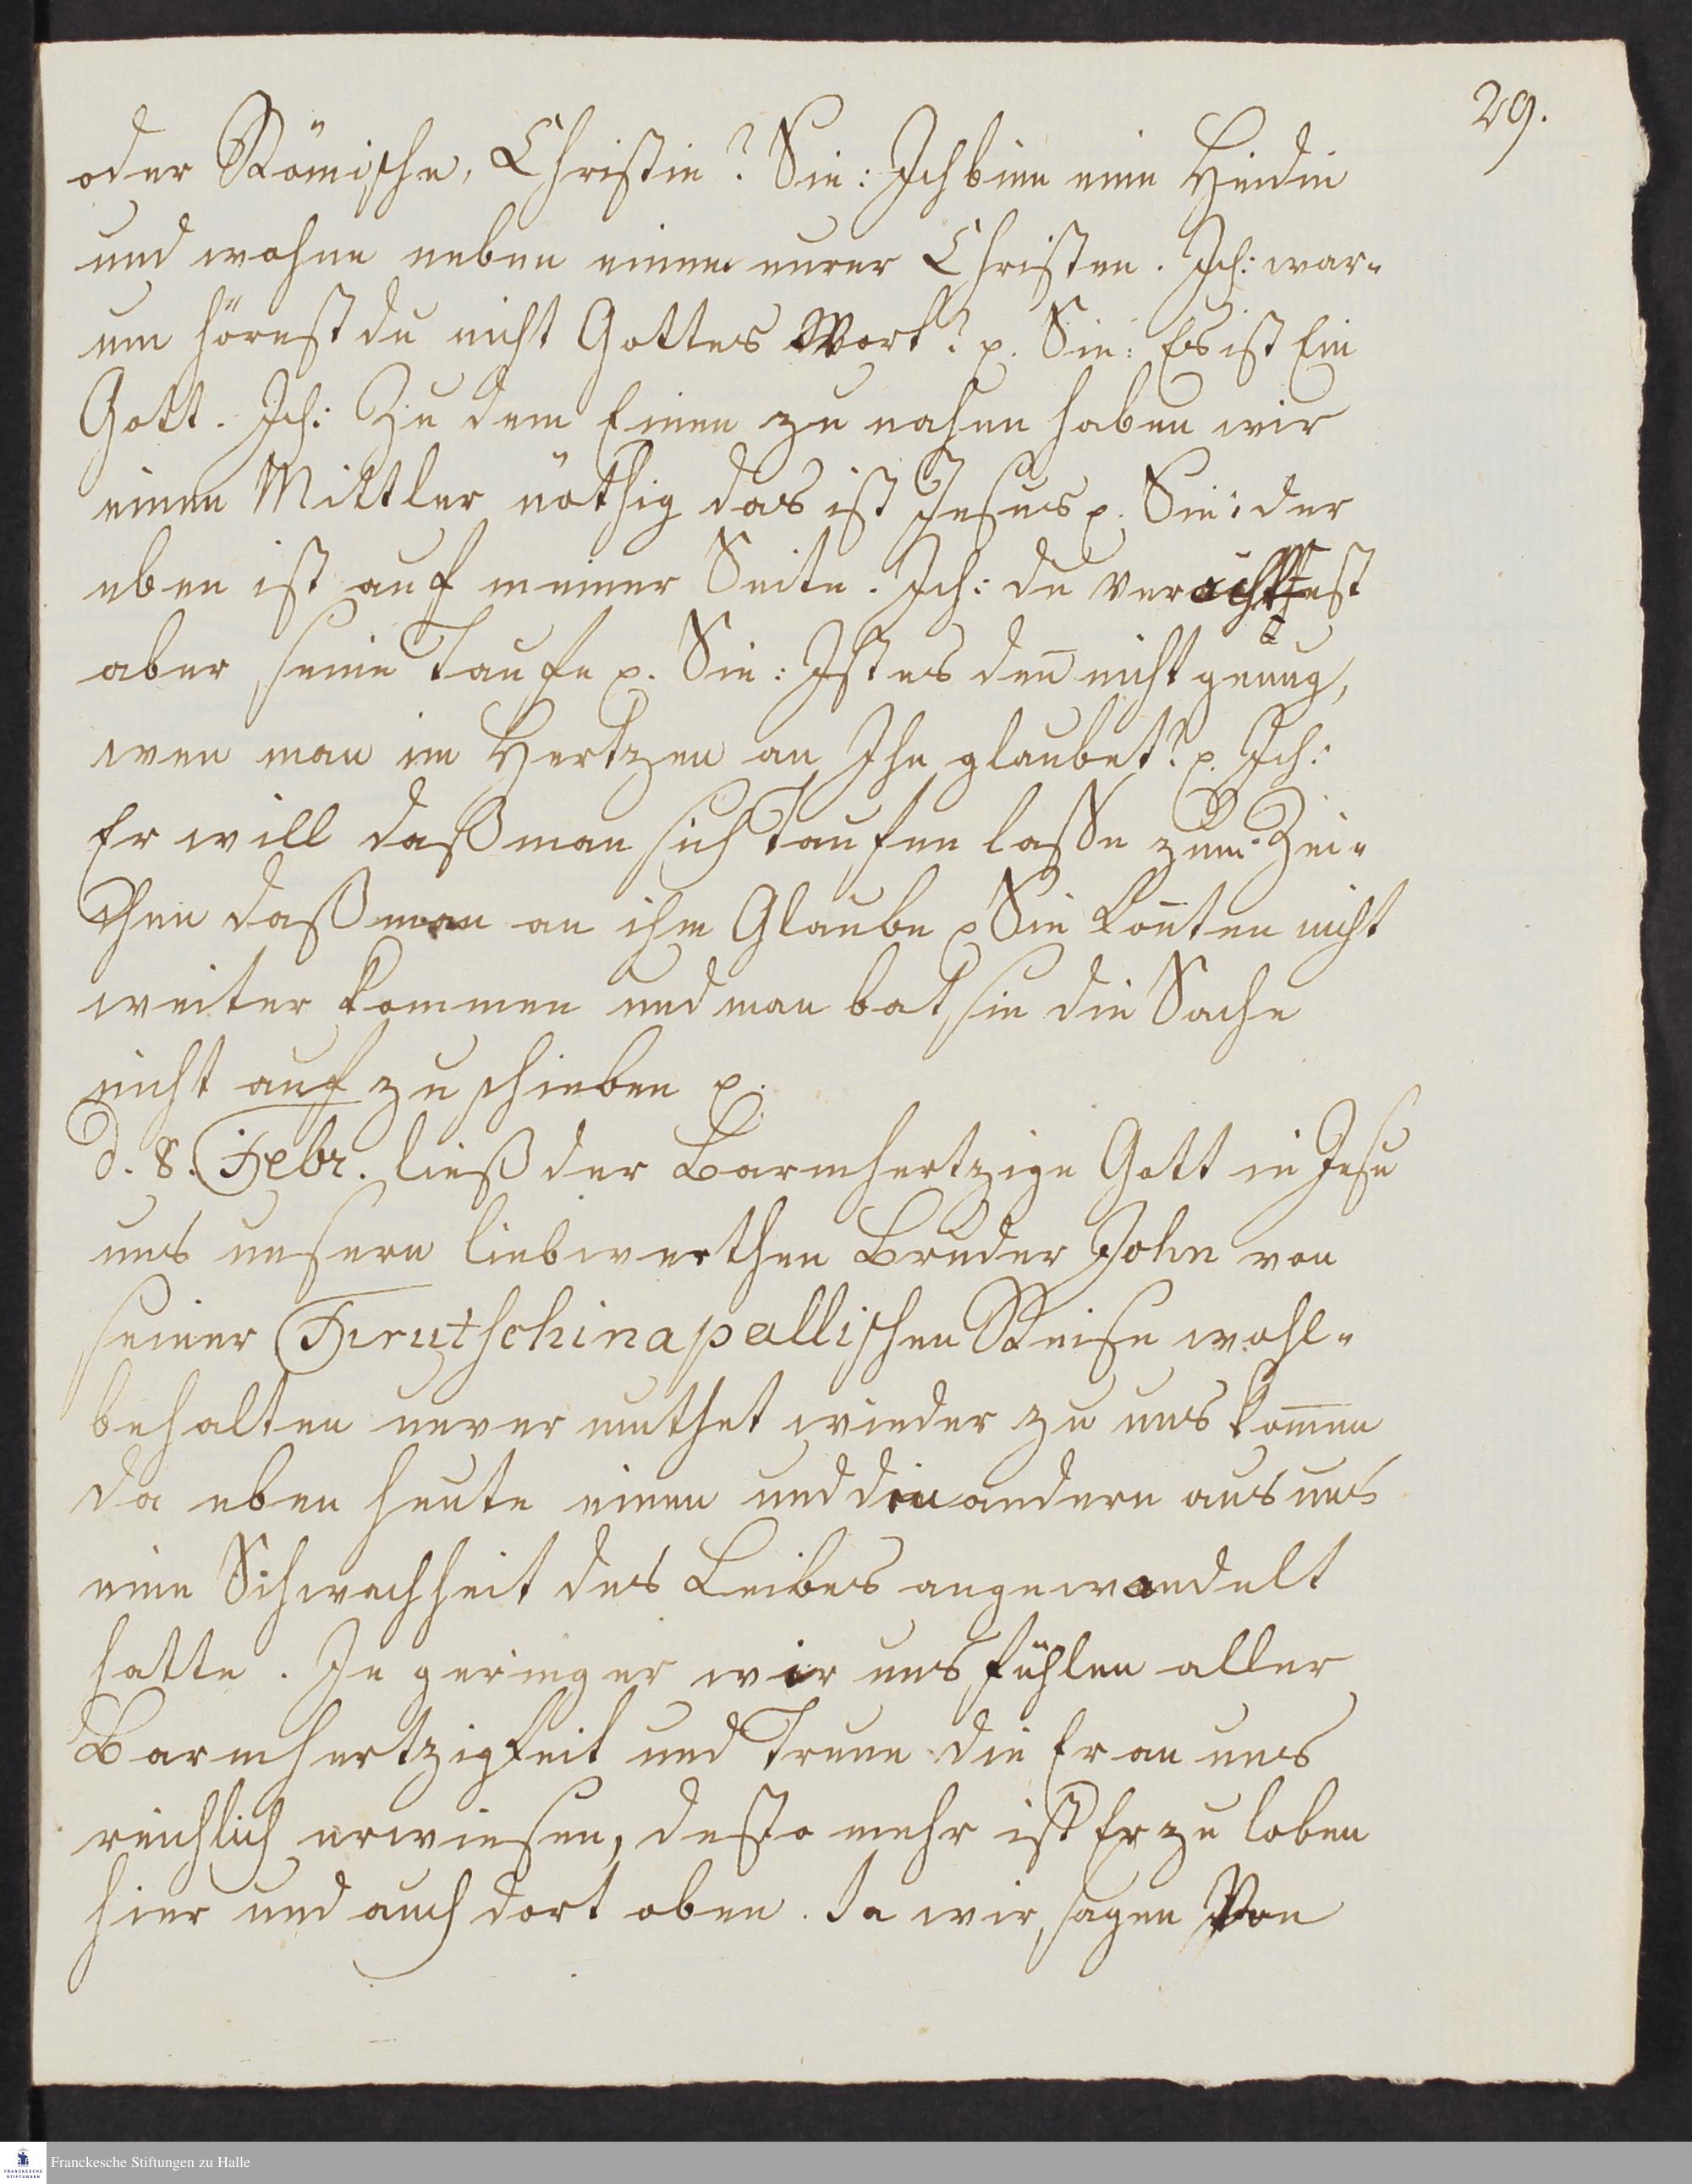 29.
oder Römische, Christin? Sie: Ich binn eine Heidin
und wohne neben einem eurer Christen. Ich: war-
um hörest du nicht Gottes Wort? p. Sie: Es ist Ein
Gott. Ich: Zu dem Einen zu nahen haben wir
einen Mittler nöthig das ist Jesus p. Sie: der
eben ist auf meiner Seite. Ich: du verachtest
aber seine Taufe p. Sie: Ist es den̅ nicht genug,
wen man im Hertzen an Ihn glaubet? p. Ich:
Er will daß man sich taufen lasse zum Zei-
chen daß man an ihn Glaube p Sie kon̅ten nicht
weiter kommen und man bat sie die Sache
nicht auf zu schieben p.
d. 8. Febr. ließ der Barmhertzige Gott in Jesu
uns unsern liebwerthen Bruder John von
seiner Tirutschinapallischen Reise wohl-
behalten unvermuthet wieder zu uns kom̅en
da eben heute einen und den andern aus uns
eine Schwachheit des Leibes angewandelt
hatte. Je geringer wir uns fühlen aller
Barmhertzigkeit und Treue die Er an uns
reichlich erwiesen, desto mehr ist Er zu loben
hier und auch dort oben. Ja wir sagen Von
Franckesche Stiftungen zu Halle
FRANCKESCHE
STIFTUNGEN